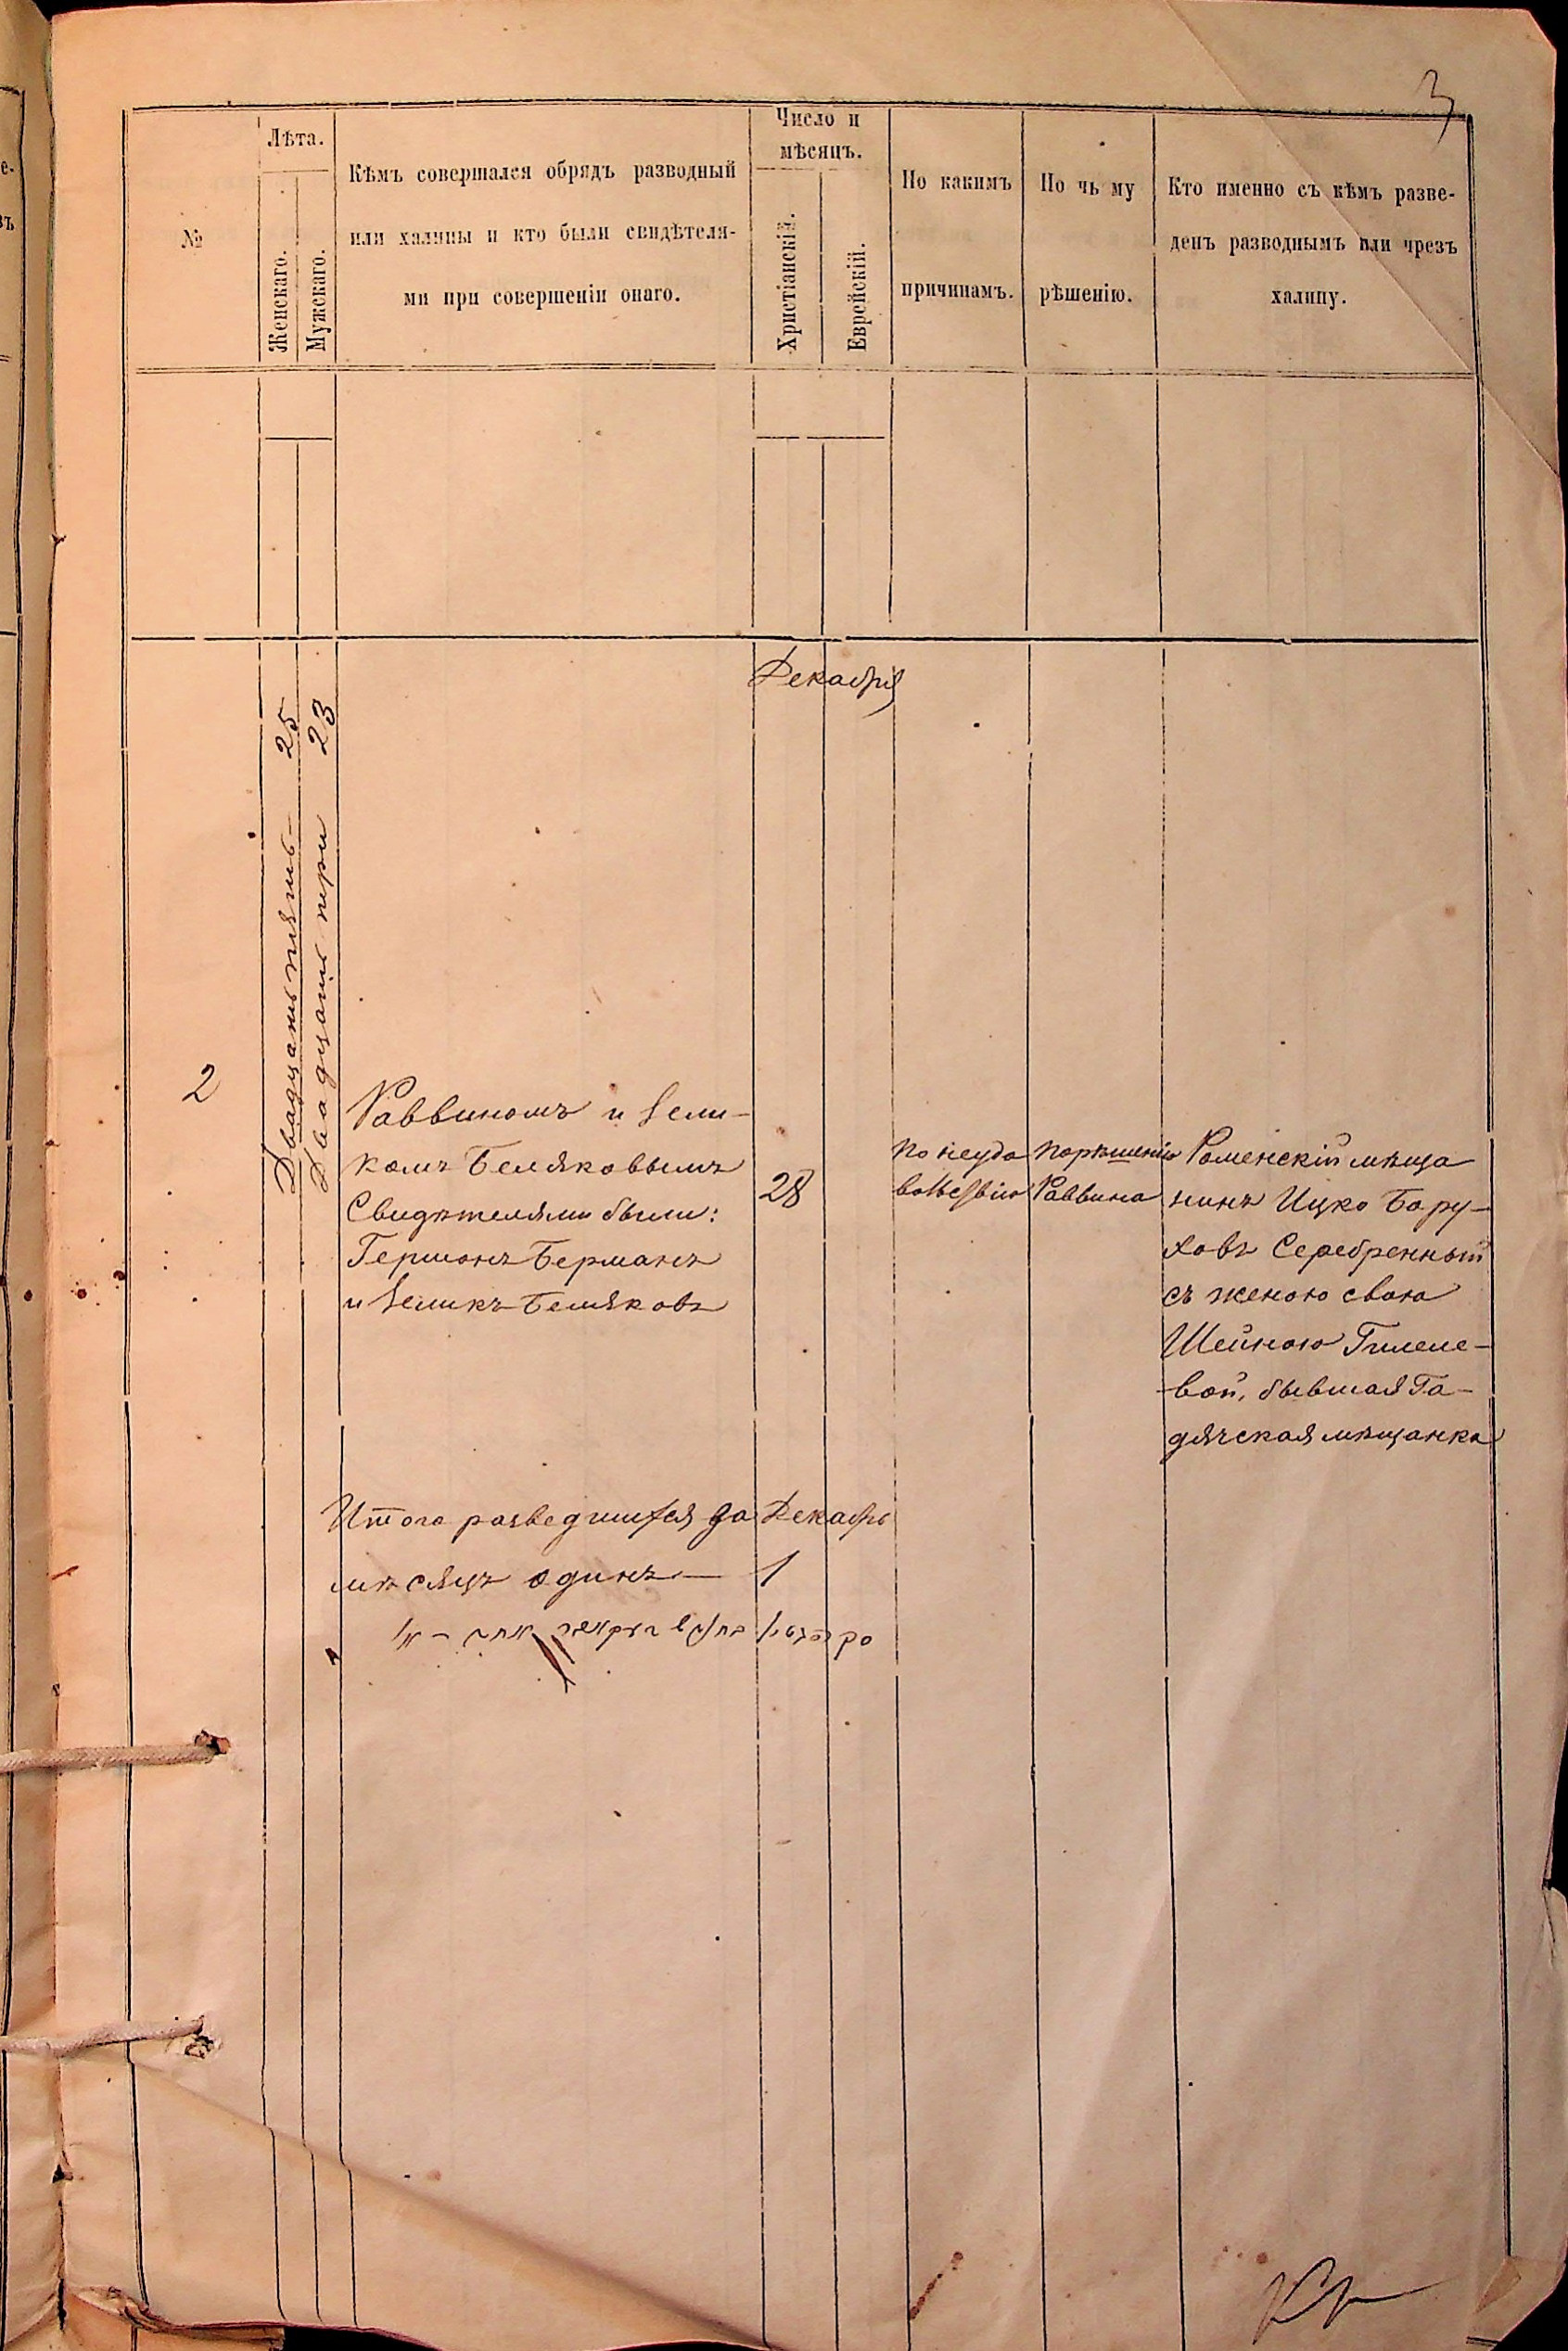 3
№
Лѣта.
Женскаго.
Мужскаго.
Кѣмъ совершался обрядъ разводный
или халицы и кто были свидѣтеля-
ми при совершеніи онаго.
Число и
мѣсяцъ.
Христіанскій.
Еврейскій.
По какимъ
причинамъ.
По чь му
рѣшенію.
Кто именно съ кѣмъ разве-
денъ разводнымъ или чрезъ
халицу.
Декабря
2
Двадцать пять 25
Двадцать три 23
Раввиномъ и Зели-
комъ Беляковымъ
Свидѣтелями были:
Гершонъ Берманъ
и Зеликъ Беляковъ
28
по неудо
вольствію
по рѣшенію
Раввина
Роменскій мѣща
нинъ Ицко Бору-
ховъ Серебренный
съ женою свою
Шейною Гилеле-
вой, бывшая Га-
дячская мѣщанка
Итого разведшихся за Декабрь
мѣсяцъ одинъ — 1